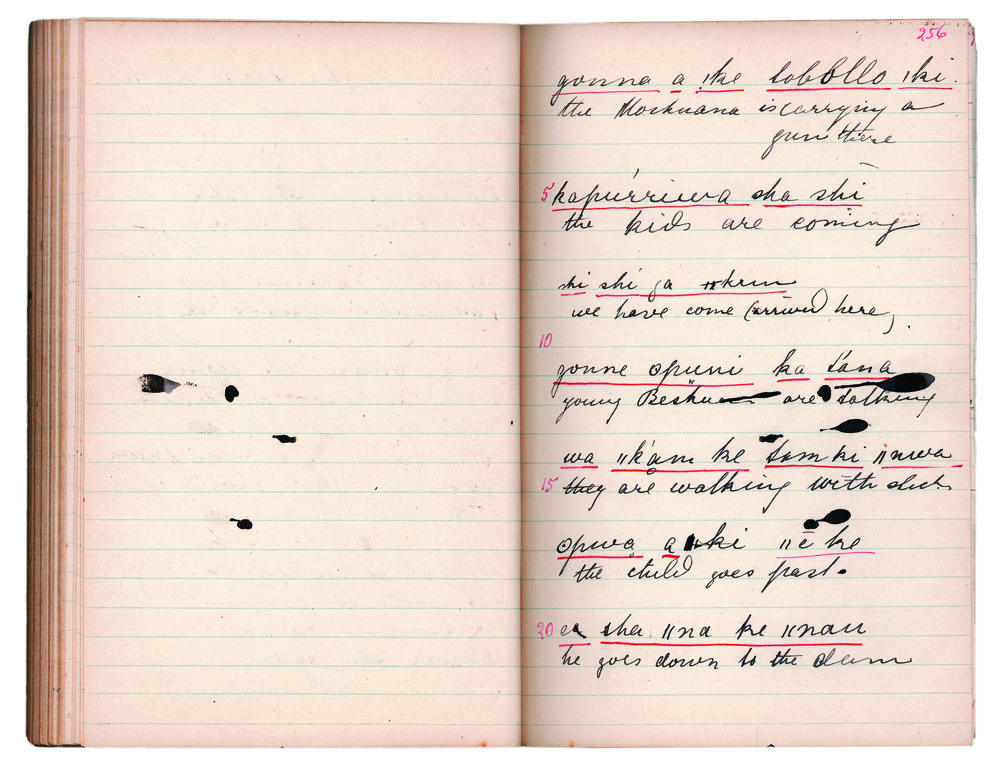 256
gonna a !ke tobollo !ki.
the Moshuana is carrying a
gun there
5 kapúrriwa sha shi
the kids are coming
shi shi ga ǁkrun
we have come (arrived here)
10
gonne ʘpuni ka tána
young Beshuan are talking
wa ǁk'am ke tamki ǁnwa
15 they are walking with
ʘpwa a ki ǁē ke
the child goes past.
20 sha ǁna ke ǁnau
he goes down to the dam